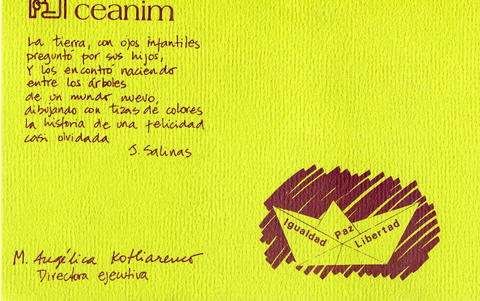 ceanim
La tierra, con ojos infantiles
preguntó por sus hijos,
Y los encontró naciendo
entre los árboles
de un mundo nuevo,
dibujando con tizas de colores
la historia de una felicidad
casi olvidada
J. Salinas
Igualdad Paz Libertad
M. Angélica Kotliarenco
Directora ejecutiva